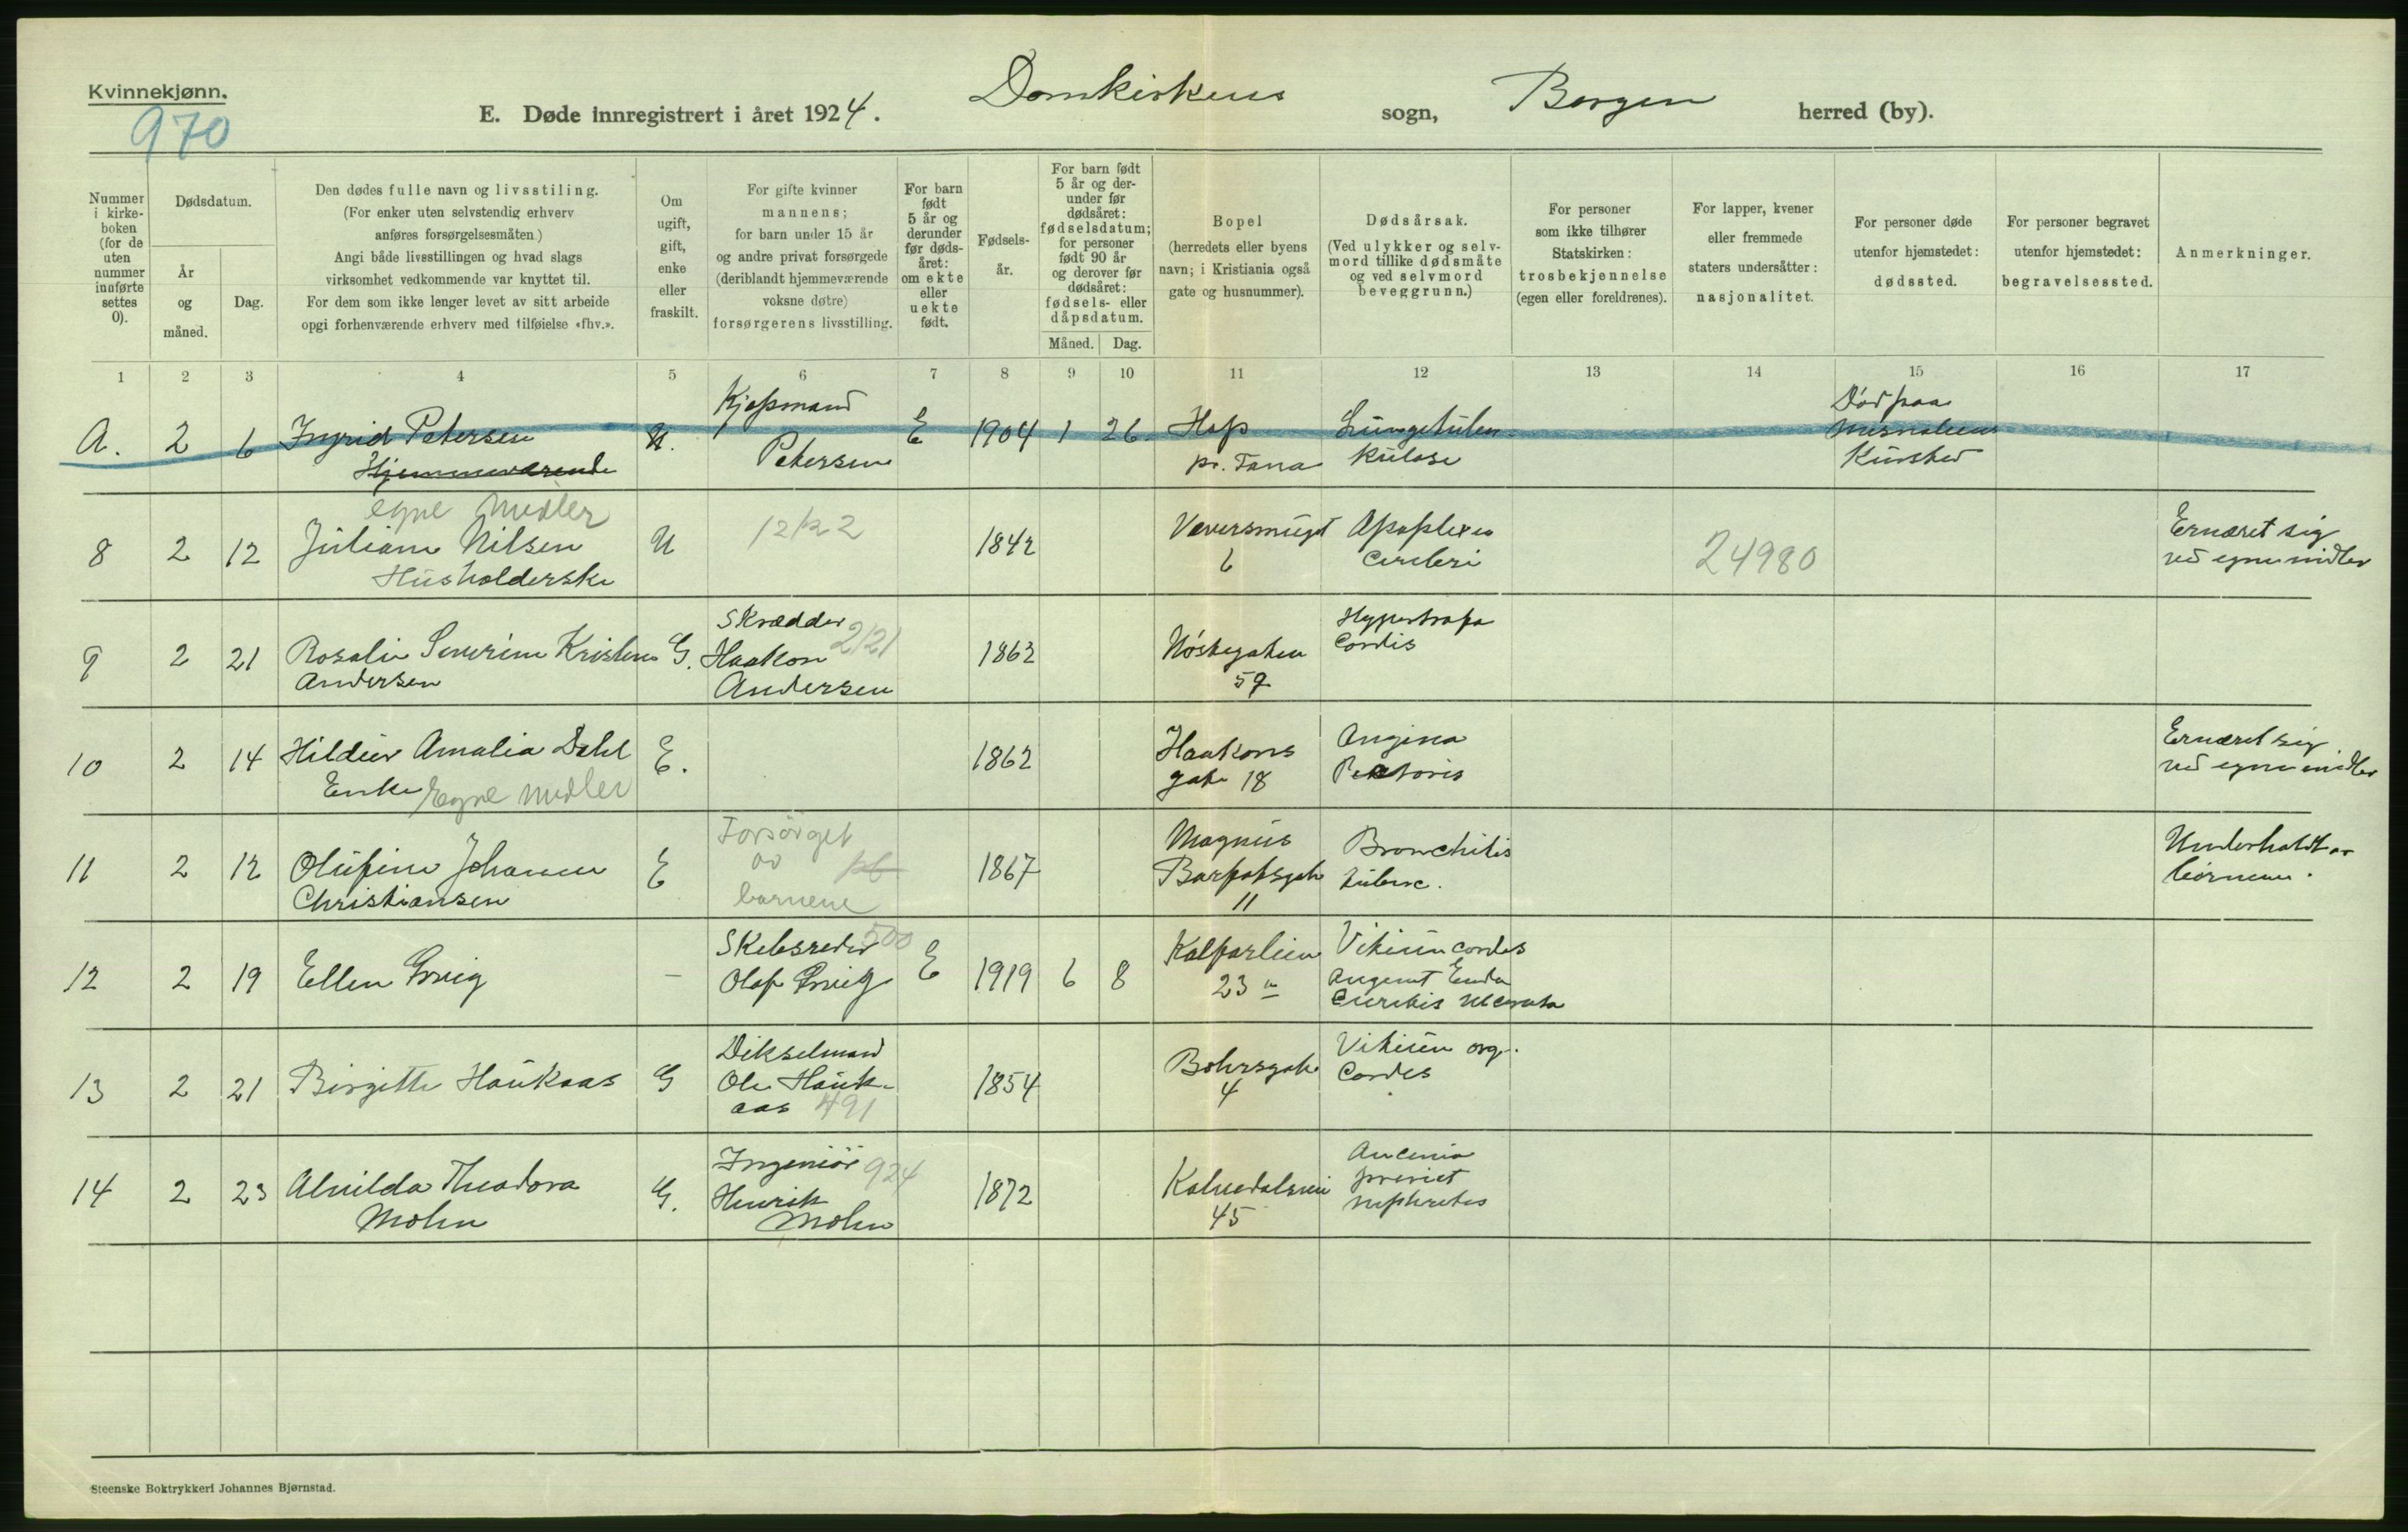 Kvinnekjønn.
970
E. Døde innregistrert i året 1924. Domkirkens sogn, Bergen herred (by).
Nummer i kirkeboken (for de uten nummer innførte settes 0).
Dødsdatum.
År og måned.
Dag.
Den dødes fulle navn og livsstiling.
(For enker uten selvstendig erhverv
anføres forsørgelsesmåten)
Angi både livsstillingen og hvad slags
virksomhet vedkommende var knyttet til.
For dem som ikke lenger levet av sitt arbeide
opgi forhenværende erhverv med tilføielse «fhv.».
Om
ugift,
gift,
enke
eller
fraskilt.
For gifte kvinner
mannens;
for barn under 15 år
og andre privat forsørgede
(deriblandt hjemmeværende
voksne døtre)
forsørgerens livsstilling.
For barn
født
5 år og
derunder
før døds-
året:
om ekte
eller
uekte
født.
Fødsels-
år.
For barn født
5 år og der-
under før
dødsåret:
fødselsdatum;
for personer
født 90 år
og derover før
dødsåret:
fødsels- eller
dåpsdatum.
Måned. Dag.
Bopel
(herredets eller byens
navn; i Kristiania også
gate og husnummer).
Dødsårsak.
(Ved ulykker og selv-
mord tillike dødsmåte
og ved selvmord
beveggrunn.)
For personer
som ikke tilhører
Statskirken:
trosbekjennelse
(egen eller foreldrenes).
For lapper, kvener
eller fremmede
staters undersåtter:
nasjonalitet.
For personer døde
utenfor hjemstedet:
dødssted.
For personer begravet
utenfor hjemstedet:
begravelsessted.
Anmerkninger.
1 2 3 4 5 6 7 8 9 10 11 12 13 14 15 16 17
A. 2 6 Ingrid Petersen
Hjemmeværende
U.
Kjøpmand
Petersen
E 1904 1 26
Hop
pr. Fana
Lungetuber
kulose
Død paa
Kursted
egne midler
8 2 12 Juliane Nilsen
Husholderske
U 12/22 1842
Væversmuget
6
Apoplexia
Cerebri
24980
Ernæret sig
ved egne midler
9 2 21 Rosalie Severine Kristene
Andersen
G.
Skrædder 2/21
Haakon
Andersen
1863
Nøstegaten
59
Hypertrofia
Cordis
10 2 14 Hildur Amalia Dahl
Enke Egne midler
E. 1862
Haakons
gate 18
Angina
Pectoris
Ernæret sig
ved egne midler
11 2 12 Olufine Johanne
Christiansen
E
Forsørget
av
barnene
1867
Magnus
Barfotsgate
11
Bronchitis
tuberc.
Underholdt av
børnene.
12 2 19 Ellen Grieg
-
Skibsreder 500
Olaf Grieg
E 1919 6 8
Kalfarlien
23 a
Vitium cordis
Endo
13 2 21 Birgitte Haukaas
G
Dikselmand
Ole Hauk-
aas 491
1854
Bøhrsgate
4
Vitium org.
Cordis
14 2 23 Alvilda Theodora
Mohn
G.
Ingeniør 924
Henrik
Mohn
1872
Kalvedalsvei
45
Anemia
pernici
nephritis
Steenske Boktrykkeri Johannes Bjørnstad.